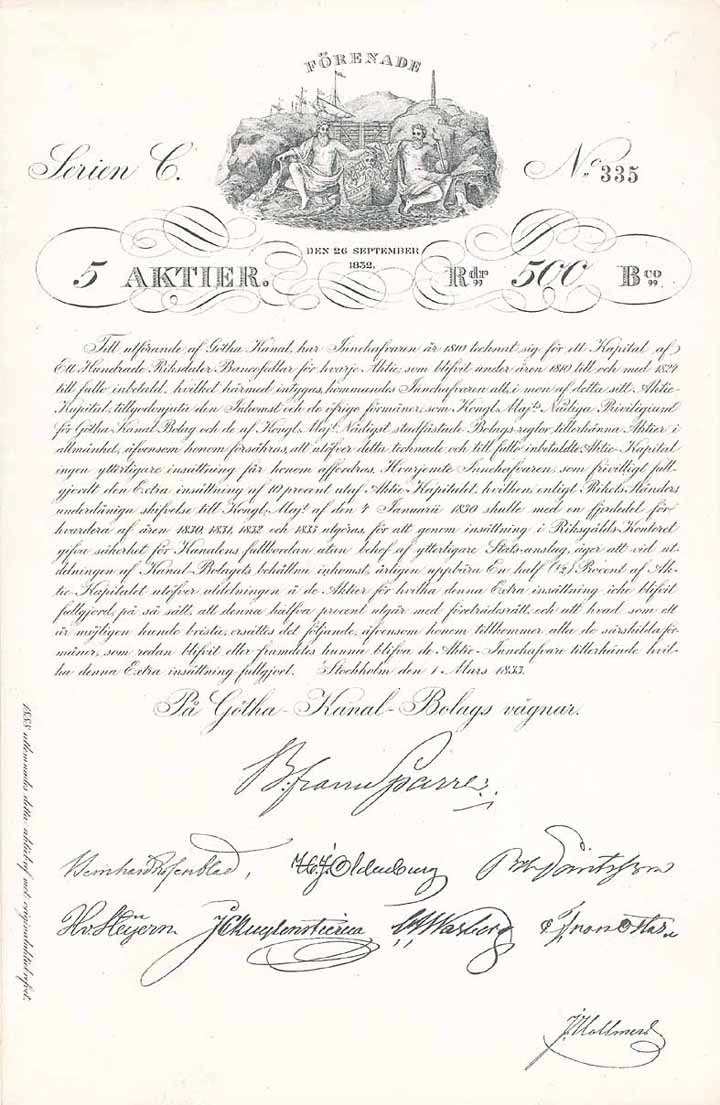 FÖRENADE
Serien C.
No 335
DEN 26 SEPTEMBER
1832.
5 AKTIER.
Rdr 500 Bco
Till utförande af Götha Kanal, har Innehafvaren år 1810 tecknat sig för ett Kapital af
Ett Hundrade Riksdaler Banco sedlar för hvarje Aktie, som blifvit under åren 1810 till och med 1824
till fullo inbetald, hvilket härmed intygas, kommandes Innehafvaren att, i mon af detta sitt Aktie-
Kapital, tillgodonjuta den Inkomst och de öfrige förmåner, som Kongl. Majts Nådiga Privilegium
för Götha Kanal Bolag och de af Kongl. Majt Nådigst stadfästade Bolags reglor tillerkänna Aktier i
allmänhet, äfvensom honom försäkras, att utöfver detta tecknade och till fullo inbetaldte Aktie-Kapital
ingen ytterligare insättning får honom affordras. Hvarjemte Innehafvaren, som frivilligt full-
gjordt den Extra insättning af 10 procent utaf Aktie Kapitalet, hvilken, enligt Rikets Ständers
underdåniga skrifvelse till Kongl. Majt af den 4 Januarii 1830 skulle med en fjerdedel för
hvardera af åren 1830, 1831, 1832 och 1833 utgöras, för att genom insättning i Riksgälds Kontoret
gifva säkerhet för Kanalens fullbordan utan behof af ytterligare Stats-anslag, äger att vid ut-
delningen af Kanal-Bolagets behållna inkomst, årligen uppbära En half (½) Procent af Ak-
tie Kapitalet utöfver utdelningen å de Aktier för hvilka denna Extra insättning icke blifvit
fullgjord, på så sätt, att denna halfva procent utgår med företrädsrätt, och att hvad som ett
år möjligen kunde brista, ersättes det följande, äfvensom honom tillkommer alla de särskilda för-
måner, som redan blifvit eller framdeles kunna blifva de Aktie-Innehafvare tillerkände hvil-
ka denna Extra insättning fullgjort. Stockholm den 1 Mars 1833.
På Götha-Kanal-Bolags vägnar.
B. fram Sparre
Bernhard Rosenblad,
H. J. Oldenburg
H. v. Heijern.
J C Kuylenstierna
Wasberg
1883 utlemnades detta aktiebref mot originalaktiebrefvet.